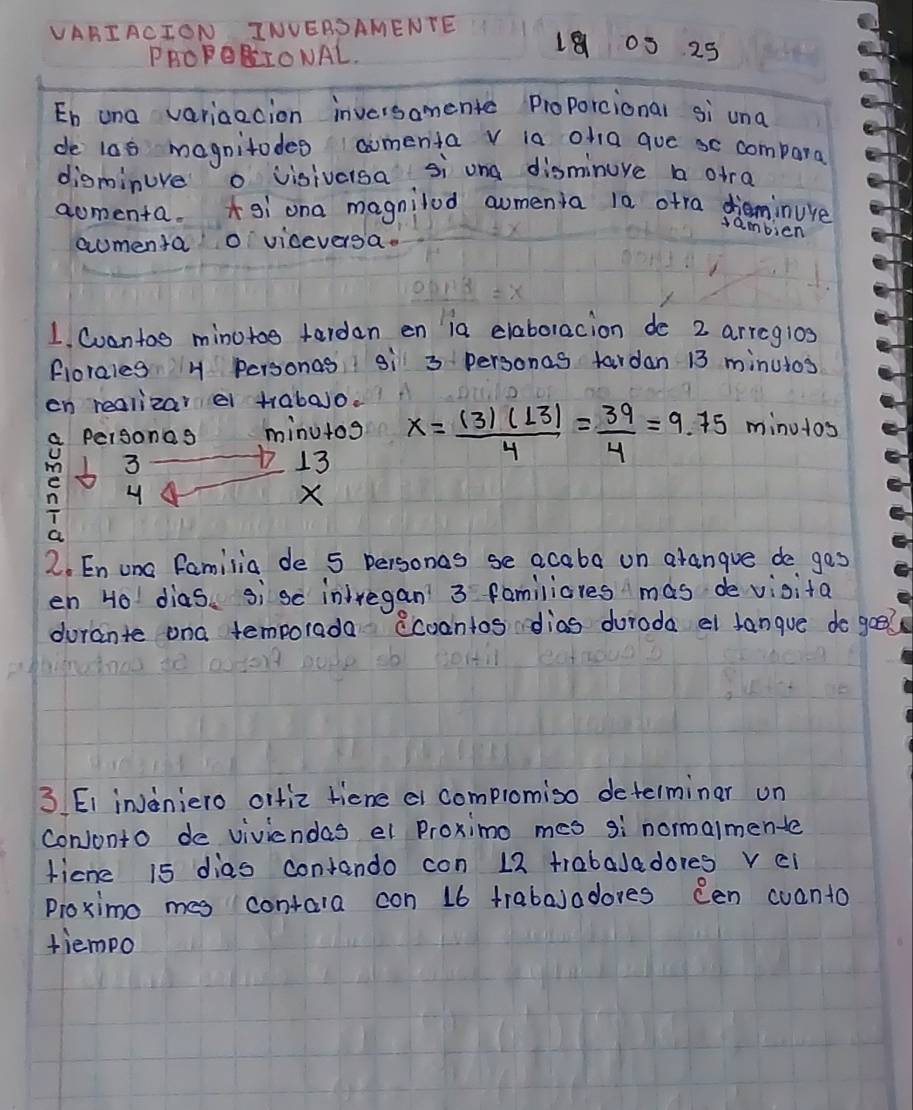 VARIACION INVERSAMENTE
PROPORCIONAL.
18 05 25
En una variaacion inversamente Proporcional si una
de las magnitodes aumenta y la otra que se compara
disminuye o visiversa si una disminuye la otra
aumenta. * si una magnitud aumenta la otra disminuye
tambien
aumenta o viceversa.
1. Cuantos minutos tardan en la elaboracion de 2 arregios
florales 4 Personas si 3 personas tardan 13 minutos
en realizar el trabajo.
a Personas minutos x = (3) (13) / 4 = 39 / 4 = 9.75 minutos
3 → 13
4 ← x
aumenta
2. En una familia de 5 personas se acaba un atanque de gas
en 40 dias. si se intregan 3 familiares mas de visita
durante una temporada ¿cuantos dias duroda el tanque de gas?
3. El injeniero ortiz tiene el compromiso determinar un
conjonto de viviendas el Proximo mes si normalmente
tiene 15 dias contando con 12 trabajadores y el
Proximo mes contara con 16 trabajadores ¿en cuanto
tiempo